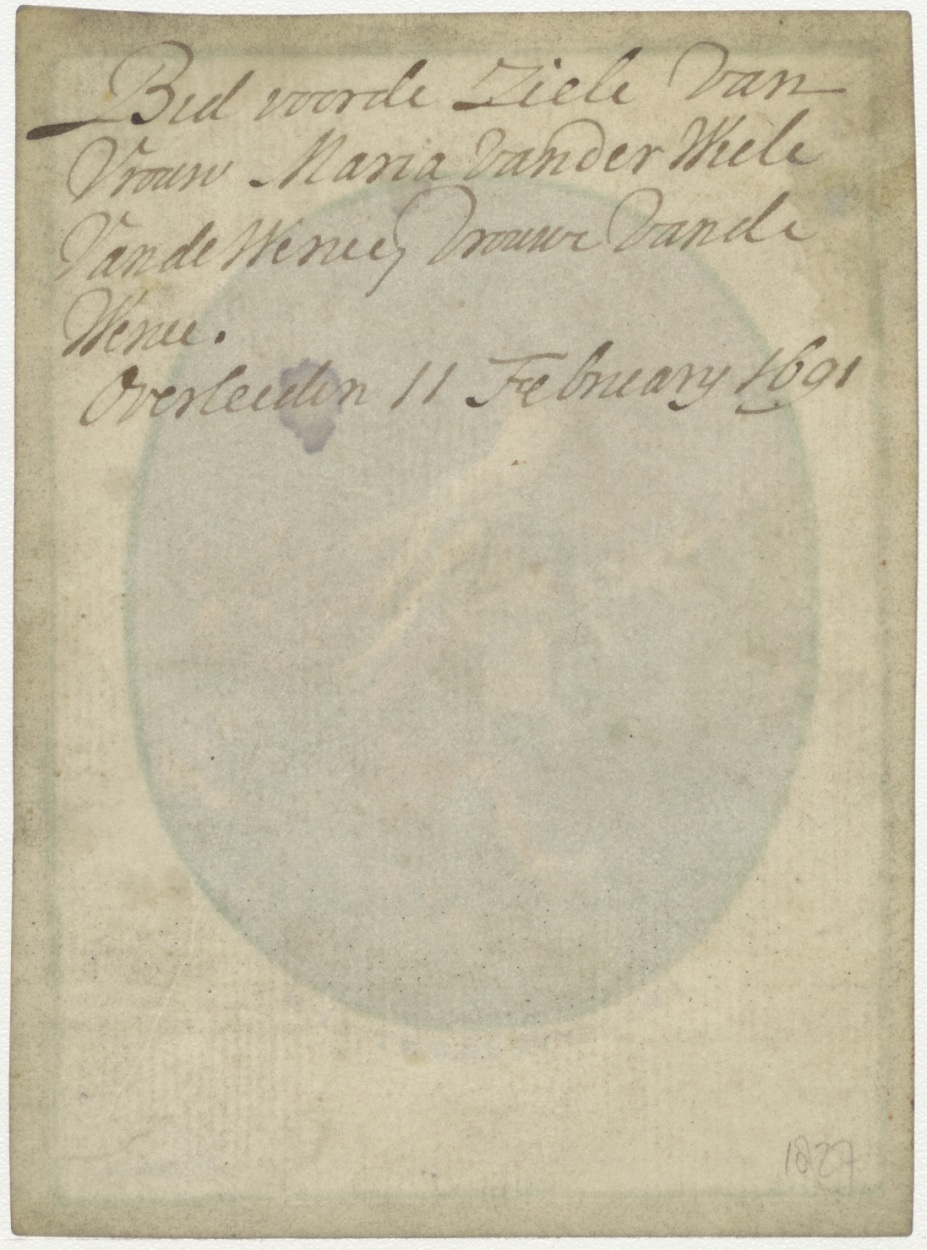 Bid voorde Ziele van
Vrouw Maria vander Wiele
Vande Werve, Vrouwe vande
Werve.
Overleeden 11 February 1691
1827